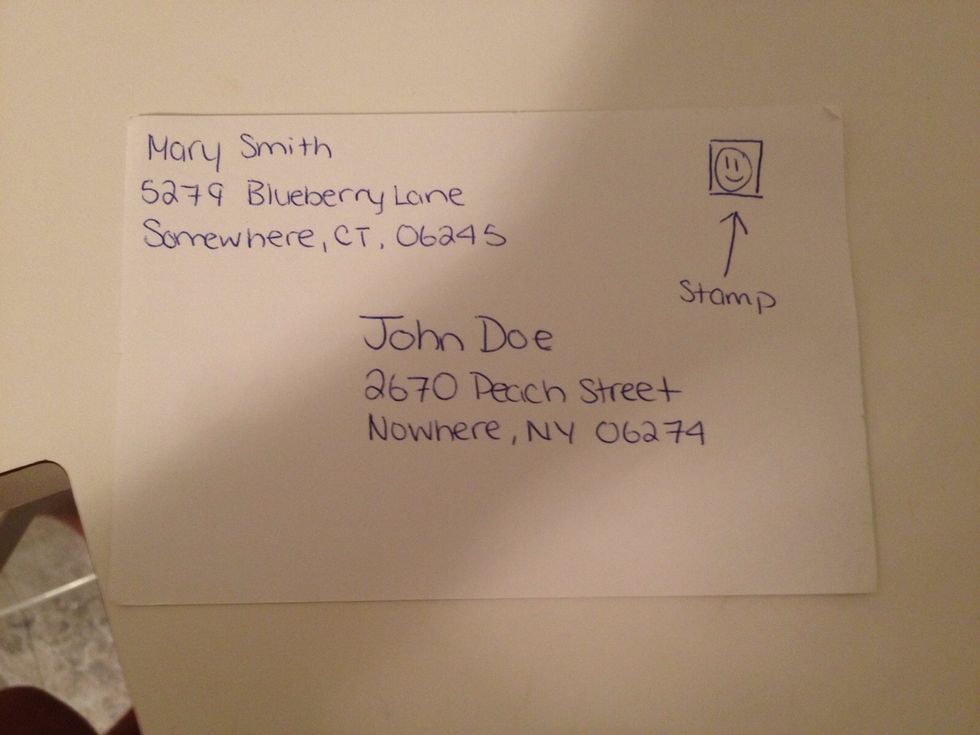 Mary Smith
5279 Blueberry Lane
Somewhere, CT, 06245
Stamp
John Doe
2670 Peach Street
Nowhere, NY 06274